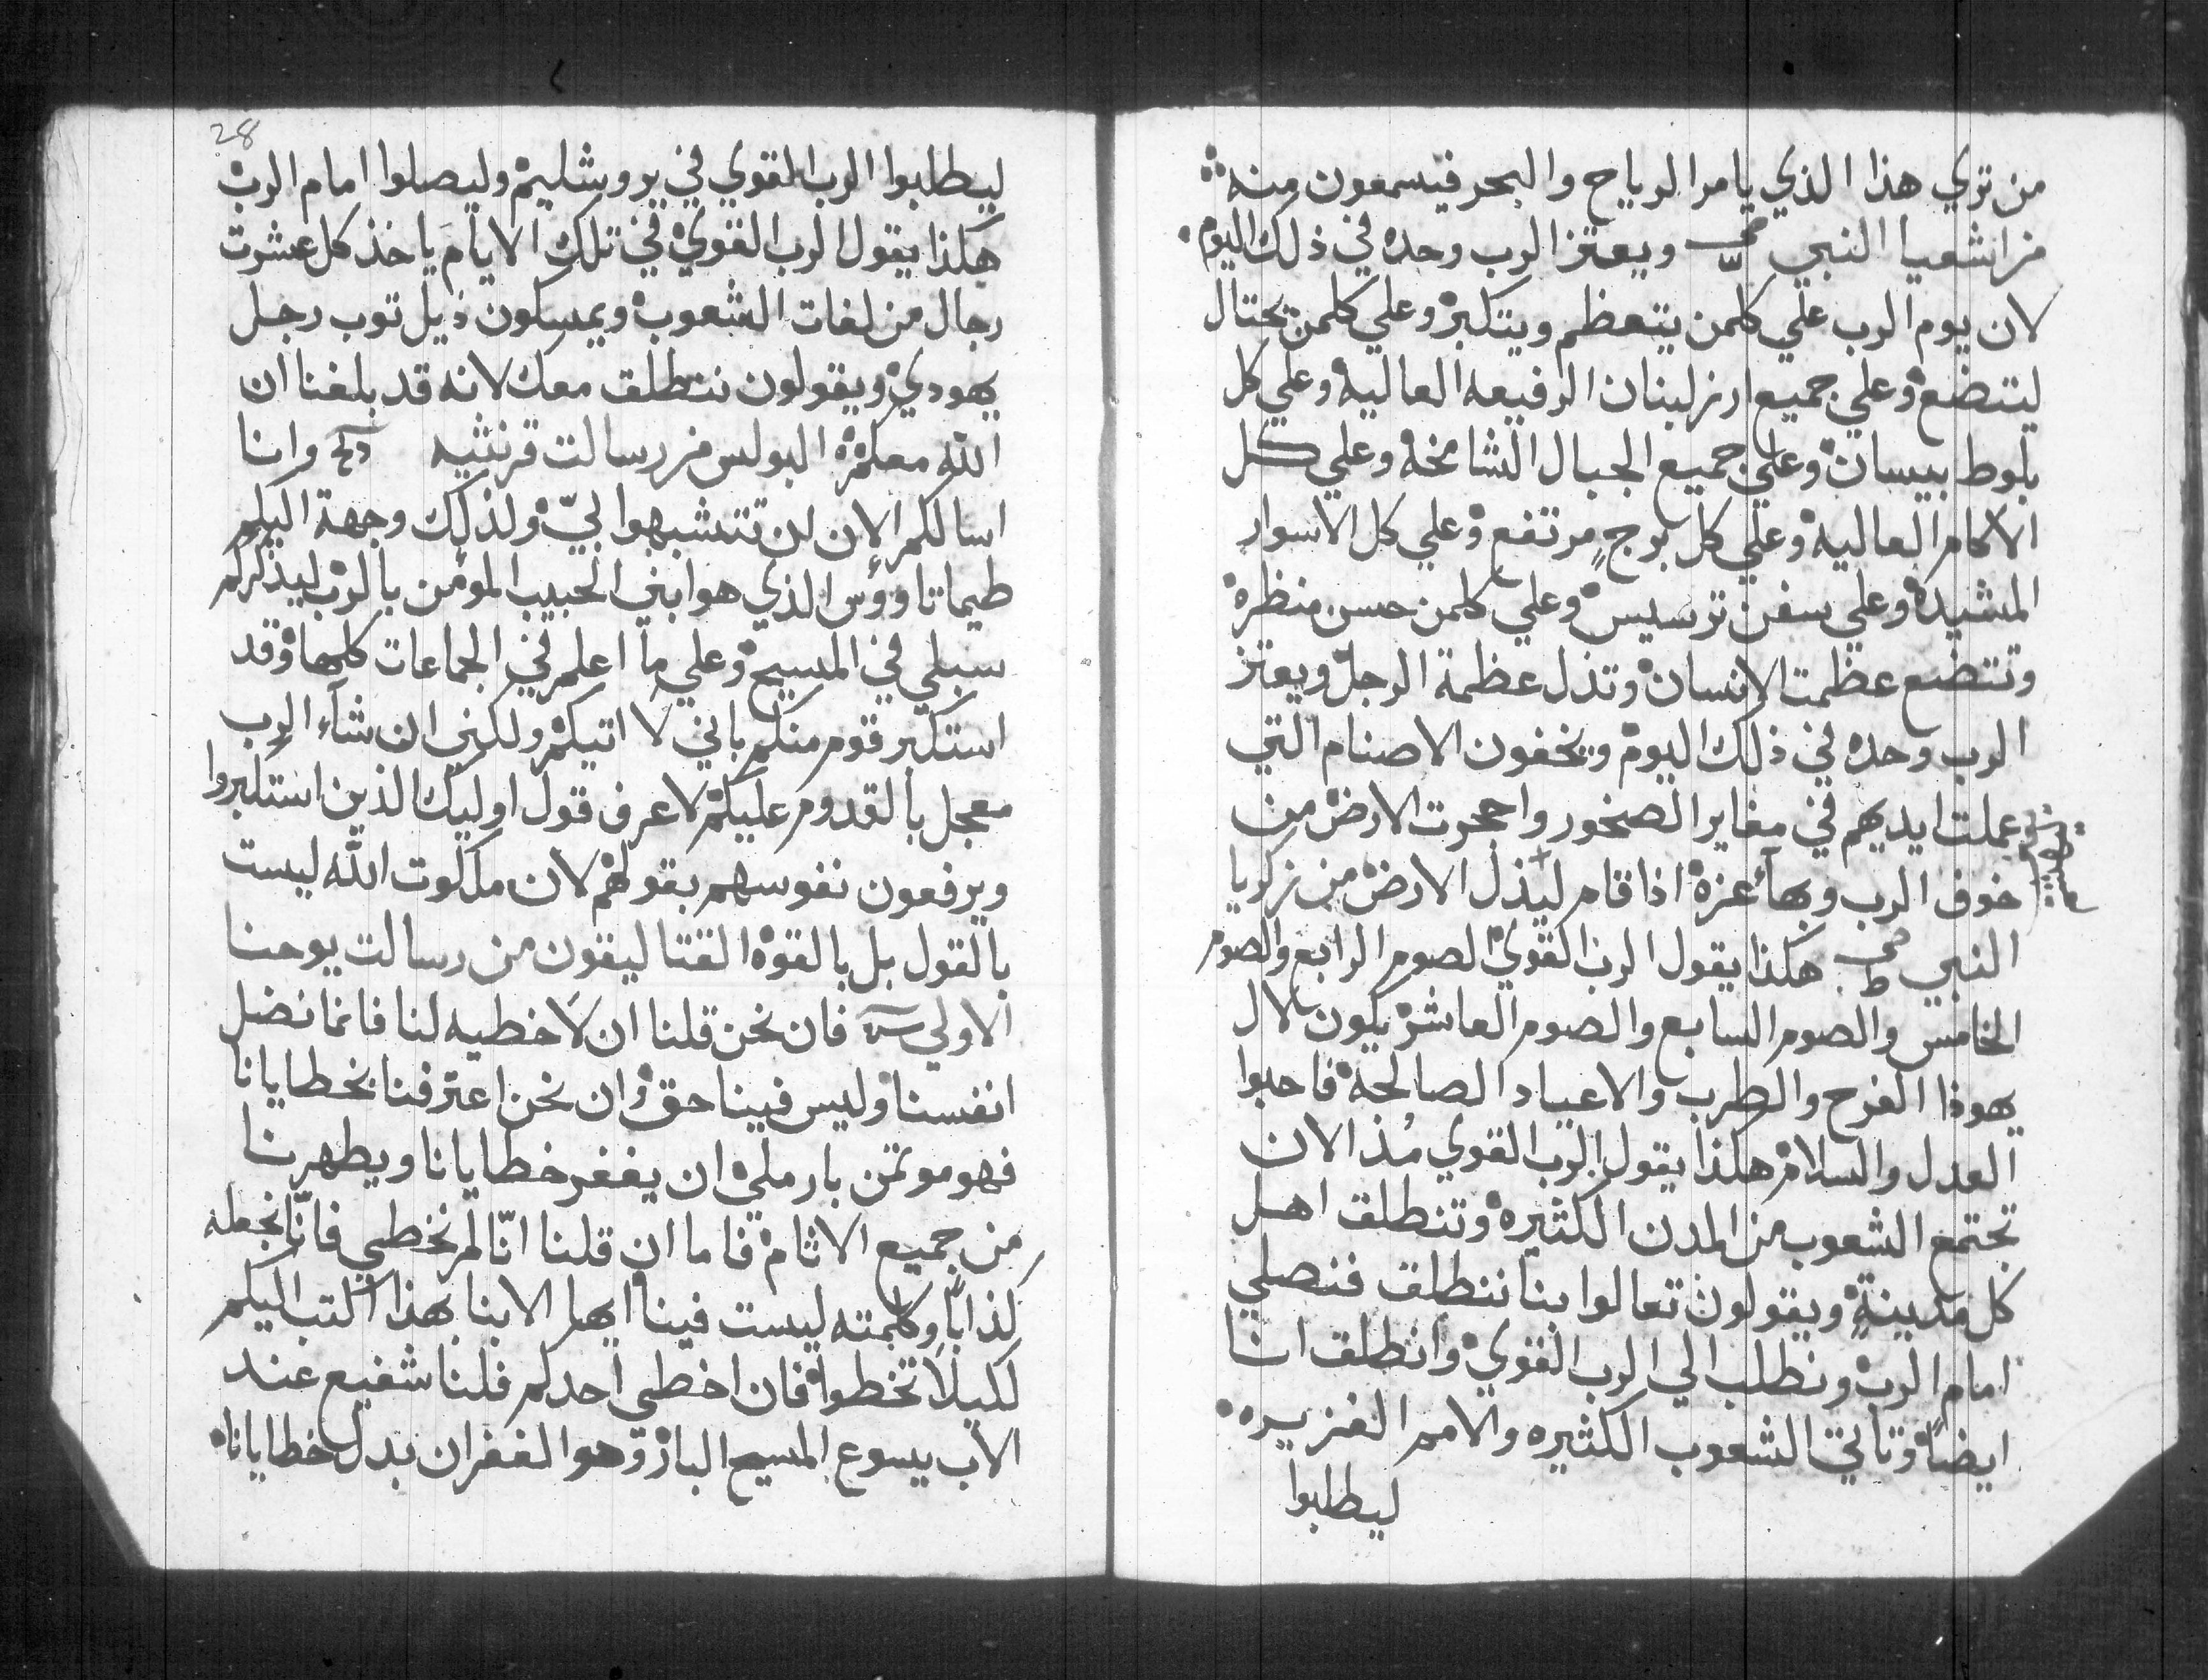 من تري هذا الذي يامر الرياح والبحر فيسمعون منه
من اشعيا النبي ويعتز الرب وحده في ذلك اليوم
لان يوم الرب علي كلمن يتعظم ويتكبر وعلي كلمن يختال
ليتضع وعلي جميع ارز لبنان الرفيعه العاليه وعلي كل
بلوط بيسان وعلي جميع الجبال الشامخه وعلي كل
الاكام العاليه وعلي كل برج مرتفع وعلي كل الاسوار
المشيده وعلي سفن ترسيس وعلي كلمن حسن منظره
وتتضع عظمت الانسان وتذل عظمة الرجل ويعتز
الرب وحده في ذلك اليوم ويخفون الاصنام التي
عملت ايديهم في مغاير الصخور واجحرت الارض من
خوف الرب وبهآء عزه اذا قام ليذل الارض من زكريا
النبي هكذا يقول الرب القوي الصوم الرابع والصوم
الخامس والصوم السابع والصوم العاشر يكون لال
يهوذا الفرح والطرب والاعياد الصالحه فاحبوا
العدل والسلام هكذا يقول الرب القوي مُذ الان
تجتمع الشعوب من المدن الكثيره وتنطلق اهل
كل مدينةٍ ويقولون تعالوا بنا ننطلق فنصلي
امام الرب ونطلب الي الرب القوي وانطلق انا
ايضاً وتاتي الشعوب الكثيره والامم الغزيره
ليطلبوا
28
ليطلبوا الرب القوي في يروشليم وليصلوا امام الرب
هكذا يقول الرب القوي في تلك الايام ياخذ كل عشرت
رجال من لغات الشعوب ويمسكون ذيل توب رجل
يهودي ويقولون ننطلق معك لانه قد بلغنا ان
الله معكم البولس من رسالت قرنثيه وانا
اسالكم الان ان تتشبهوا بيّ ولذلك وجهة اليكم
طيماتاووس الذي هو ابني الحبيب المؤمن بالرب ليذكركم
سبلي في المسيح وعلي ما اعلم في الجماعات كلها وقد
استكبر قوم منكم باني لا اتيكم ولكني ان شآء الرب
معجل بالقدوم عليكم لاعرف قول اوليك الذين استكبروا
ويرفعون نفوسهم بقولهم لان ملكوت الله ليست
بالقول بل بالقوه القتاليقون من رسالت يوحنا
الاولي فان نحن قلنا ان لا خطيه لنا فانما نضل
انفسنا وليس فينا حق وان نحن اعترفنا بخطايانا
فهو موتمن بار ملي ان يغفر خطايانا ويطهرنا
من جميع الاثام فاما ان قلنا انّا لم نخطي فانّا نجعله
كذاباً وكلمته ليست فينا ايها الابنا بهذا اكتب اليكم
لكيلا تخطوا فان اخطي احدكم فلنا شفيع عند
الاب يسوع المسيح البار وهو الغفران بدل خطايانا